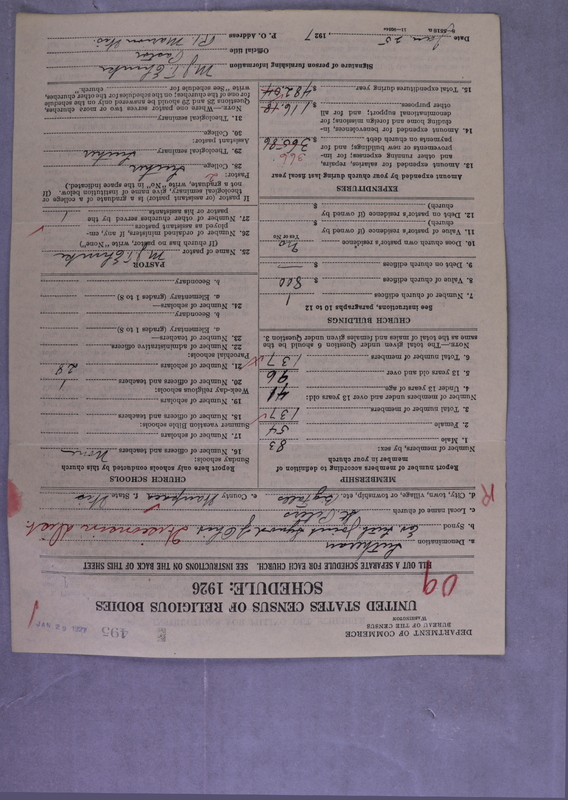 DEPARTMENT OF COMMERCE
BUREAU OF THE CENSUS
WASHINGTON
495
UNITED STATES CENSUS OF RELIGIOUS BODIES
SCHEDULE: 1926
09
FILL OUT A SEPARATE SCHEDULE FOR EACH CHURCH. SEE INSTRUCTIONS ON THE BACK OF THIS SHEET
a. Denomination Lutheran
b. Synod Ev. Luth. Joint Synod of Ohio Wisconsin Dist.
c. Local name of church St. Peters
d. City, town, village, or township, etc. Big Falls e. County Waupaca f. State Wis
R
MEMBERSHIP
Report number of members according to definition of
member in your church
Number of members, by sex:
1. Male 83
2. Female 54
3. Total number of members 137
Number of members under and over 13 years old:
4. Under 13 years of age 41
5. 13 years old and over 96
6. Total number of members 137
NOTE—The total given under Question 6 should be the
same as the total of males and females given under Question 3.
CHURCH BUILDINGS
See instructions, paragraphs 10 to 12
7. Number of church edifices 1
8. Value of church edifices $ 800
9. Debt on church edifices $ —
10. Does church own pastor's residence no
Yes or No
11. Value of pastor's residence (if owned by
church) $
12. Debt on pastor's residence (if owned by
church) $
EXPENDITURES
Amount expended by your church during last fiscal year
13. Amount expended for salaries, repairs,
and other running expenses; for im-
provements or new buildings; and for
payments on church debt $ 365.86
366
14. Amount expended for benevolences, in-
cluding home and foreign missions; for
denominational support; and for all
other purposes $ 116.78
15. Total expenditures during year $ 482.64
CHURCH SCHOOLS
Report here only schools conducted by this church
Sunday schools:
16. Number of officers and teachers None
17. Number of scholars
Summer vacation Bible schools:
18. Number of officers and teachers
19. Number of scholars
Week-day religious schools:
20. Number of officers and teachers 1
21. Number of scholars 29
Parochial schools:
22. Number of administrative officers
23. Number of teachers—
a. Elementary (grades 1 to 8)
b. Secondary
24. Number of scholars—
a. Elementary (grades 1 to 8)
b. Secondary
PASTOR
25. Name of pastor M. J. F. Ehmke
(If church has no pastor, write "None")
26. Number of ordained ministers, if any, em-
ployed as assistant pastors
27. Number of other churches served by the
pastor or his assistants 1
If pastor (or assistant pastor) is a graduate of a college or
theological seminary, give name of institution below. (If
not a graduate, write "No" in the space indicated.)
Pastor:
28. College
29. Theological seminary
Assistant pastor:
30. College
31. Theological seminary
NOTE.—Where one pastor serves two or more churches,
Questions 28 and 29 should be answered only on the schedule
for one of the churches; on the schedules for the other churches,
write "See schedule for church."
Signature of person furnishing information M. J. F. Ehmke
Official title Pastor
P. O. Address R1 Marion Wis
Date Jan 25, 1927